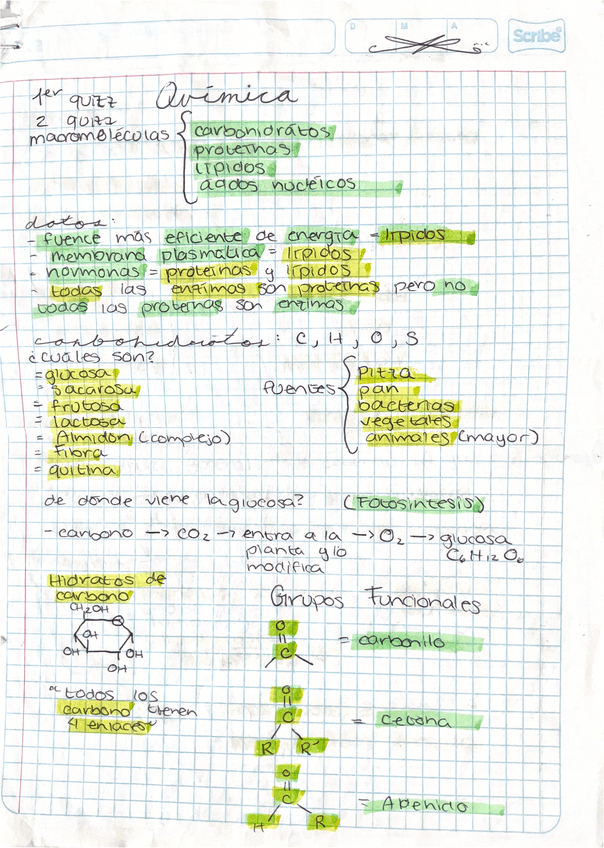 D M A
Scribe
1er quizz Química
2 quizz
macromoléculas
carbohidratos
proteínas
lípidos
ácidos nucléicos
datos:
- fuente más eficiente de energía = lípidos
- membrana plasmática = lípidos
- hormonas = proteínas y lípidos
- todas las enzimas son proteínas pero no
todas las proteínas son enzimas
carbohidratos: C, H, O, S
¿cuáles son?
= glucosa
= sacarosa
= frutosa
= lactosa
= Almidón (complejo)
= Fibra
= quitina
fuentes
Pizza
pan
bacterias
vegetales
animales (mayor)
de donde viene la glucosa? (Fotosíntesis)
- carbono → CO2 → entra a la → O2 → glucosa
planta y lo C6H12O6
modifica
Hidratos de
carbono
CH2OH
O
OH
OH OH
OH
"todos los
carbono tienen
4 enlaces"
Grupos Funcionales
O
C = carbonilo
O
C = cetona
R R'
O
C = Aldehido
H R